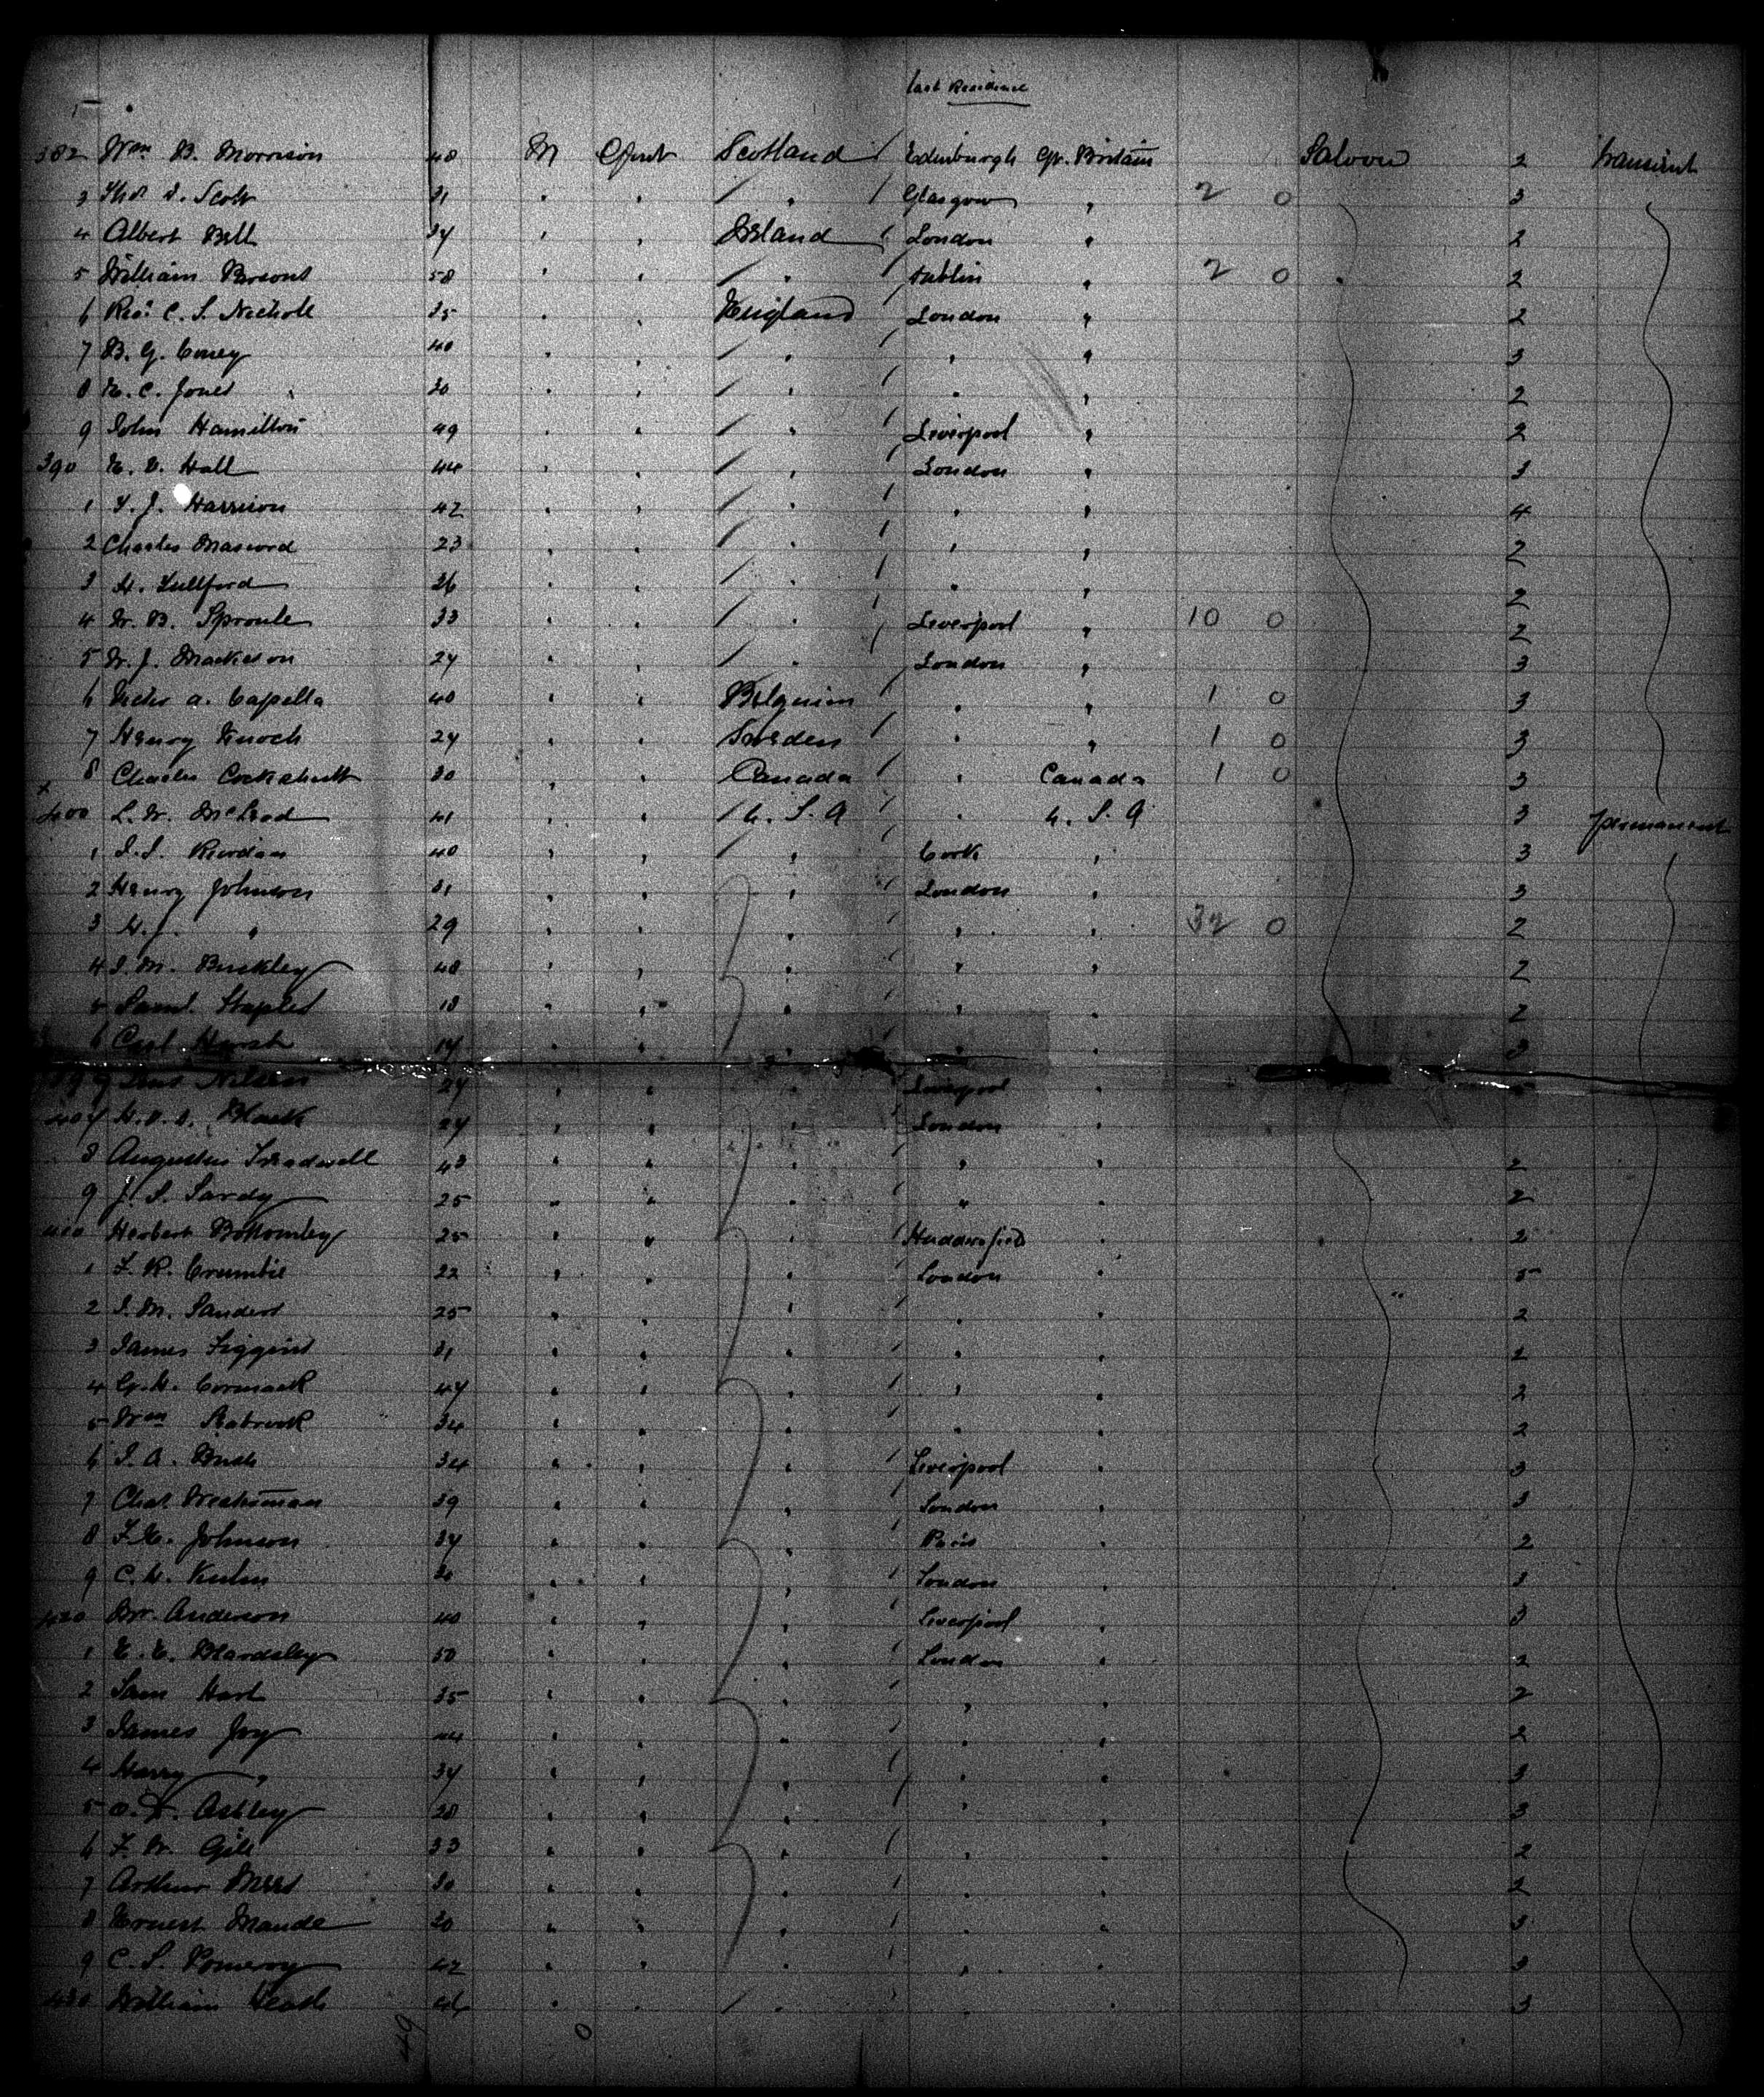 Last Residence
382 Wm B. Morrison 48 M Gent Scotland / Edinburgh Gr. Britain Saloon 2 transient
3 Thos. Scott 31 " " / " / Glasgow " 2 0 3
4 Albert Bell 34 " " Ireland / London " 2
5 William Parsons 58 " " / " / Dublin " 2 0 2
6 Rev. C. S. Nicholl 35 " " England / London " 2
7 B. G. Coney 40 " " / " / " " 3
8 E. C. Jones 30 " " / " / " " 2
9 John Hamilton 49 " " / " / Liverpool " 2
390 E. E. Hall 44 " " / " / London " 3
1 Harrison 42 " " / " / " " 4
2 Charles 23 " " / " / " " 2
3 H. 26 " " / " / " " 2
4 W. B. Sproule 33 " " / " / Liverpool " 10 0 2
5 W. J. Mackeson 24 " " / " / London " 3
6 a. Capella 40 " " Belgium / " " 1 0 3
7 Henry 24 " " Sweden / " " 1 0 3
8 Charles Cockshutt 30 " " Canada / " Canada 1 0 3
x
400 L. W. McLeod 41 " " / U. S. A / " U. S. A 3 permanent
1 Riordan 40 " " / " / Cork " 3
2 Henry Johnson 31 " " " / London " 3
3 H. J. " 29 " " " / " " 32 0 2
4 J. M. Buckley 48 " " " / " " 2
5 Saml. Staples 18 " " " / " " 2
6 Carl 14 " " " / " " 3
Nilsen 24 " " Liverpool "
407 Black 24 " " " / London "
8 Augustus Treadwell 43 " " " / " " 2
9 J. S. 25 " " " / " " 2
410 Herbert Bottomley 25 " " " / Huddersfield " 2
1 F. R. Crumbie 22 " " " London " 5
2 J. M. Sanders 25 " " " / " " 2
3 James Figgins 31 " " " / " " 2
4 G. H. Cormack 47 " " " / " " 2
5 Wm Seabrook 34 " " " " " 2
6 J. A. Bush 34 " " " / Liverpool " 3
7 Chas. 39 " " " / London " 3
8 F. E. Johnson 34 " " " / Paris " 2
9 C. H. Kuhn " " " / London " 3
420 Anderson 40 " " " / Liverpool " 3
1 E. E. Beardsley 50 " " " / London " 2
2 Sam Hart 35 " " " / " " 2
3 James Joy 44 " " " / " " 2
4 Harry " 34 " " " / " " 3
5 Ashley 28 " " " / " " 3
6 F. W. Gill 33 " " " / " " 2
7 Arthur 30 " " " / " " 2
8 Ernest Maude 30 " " " / " " 3
9 C. S. Pomeroy 42 " " " / " " 3
430 William 46 " " / " " " 3
49 0